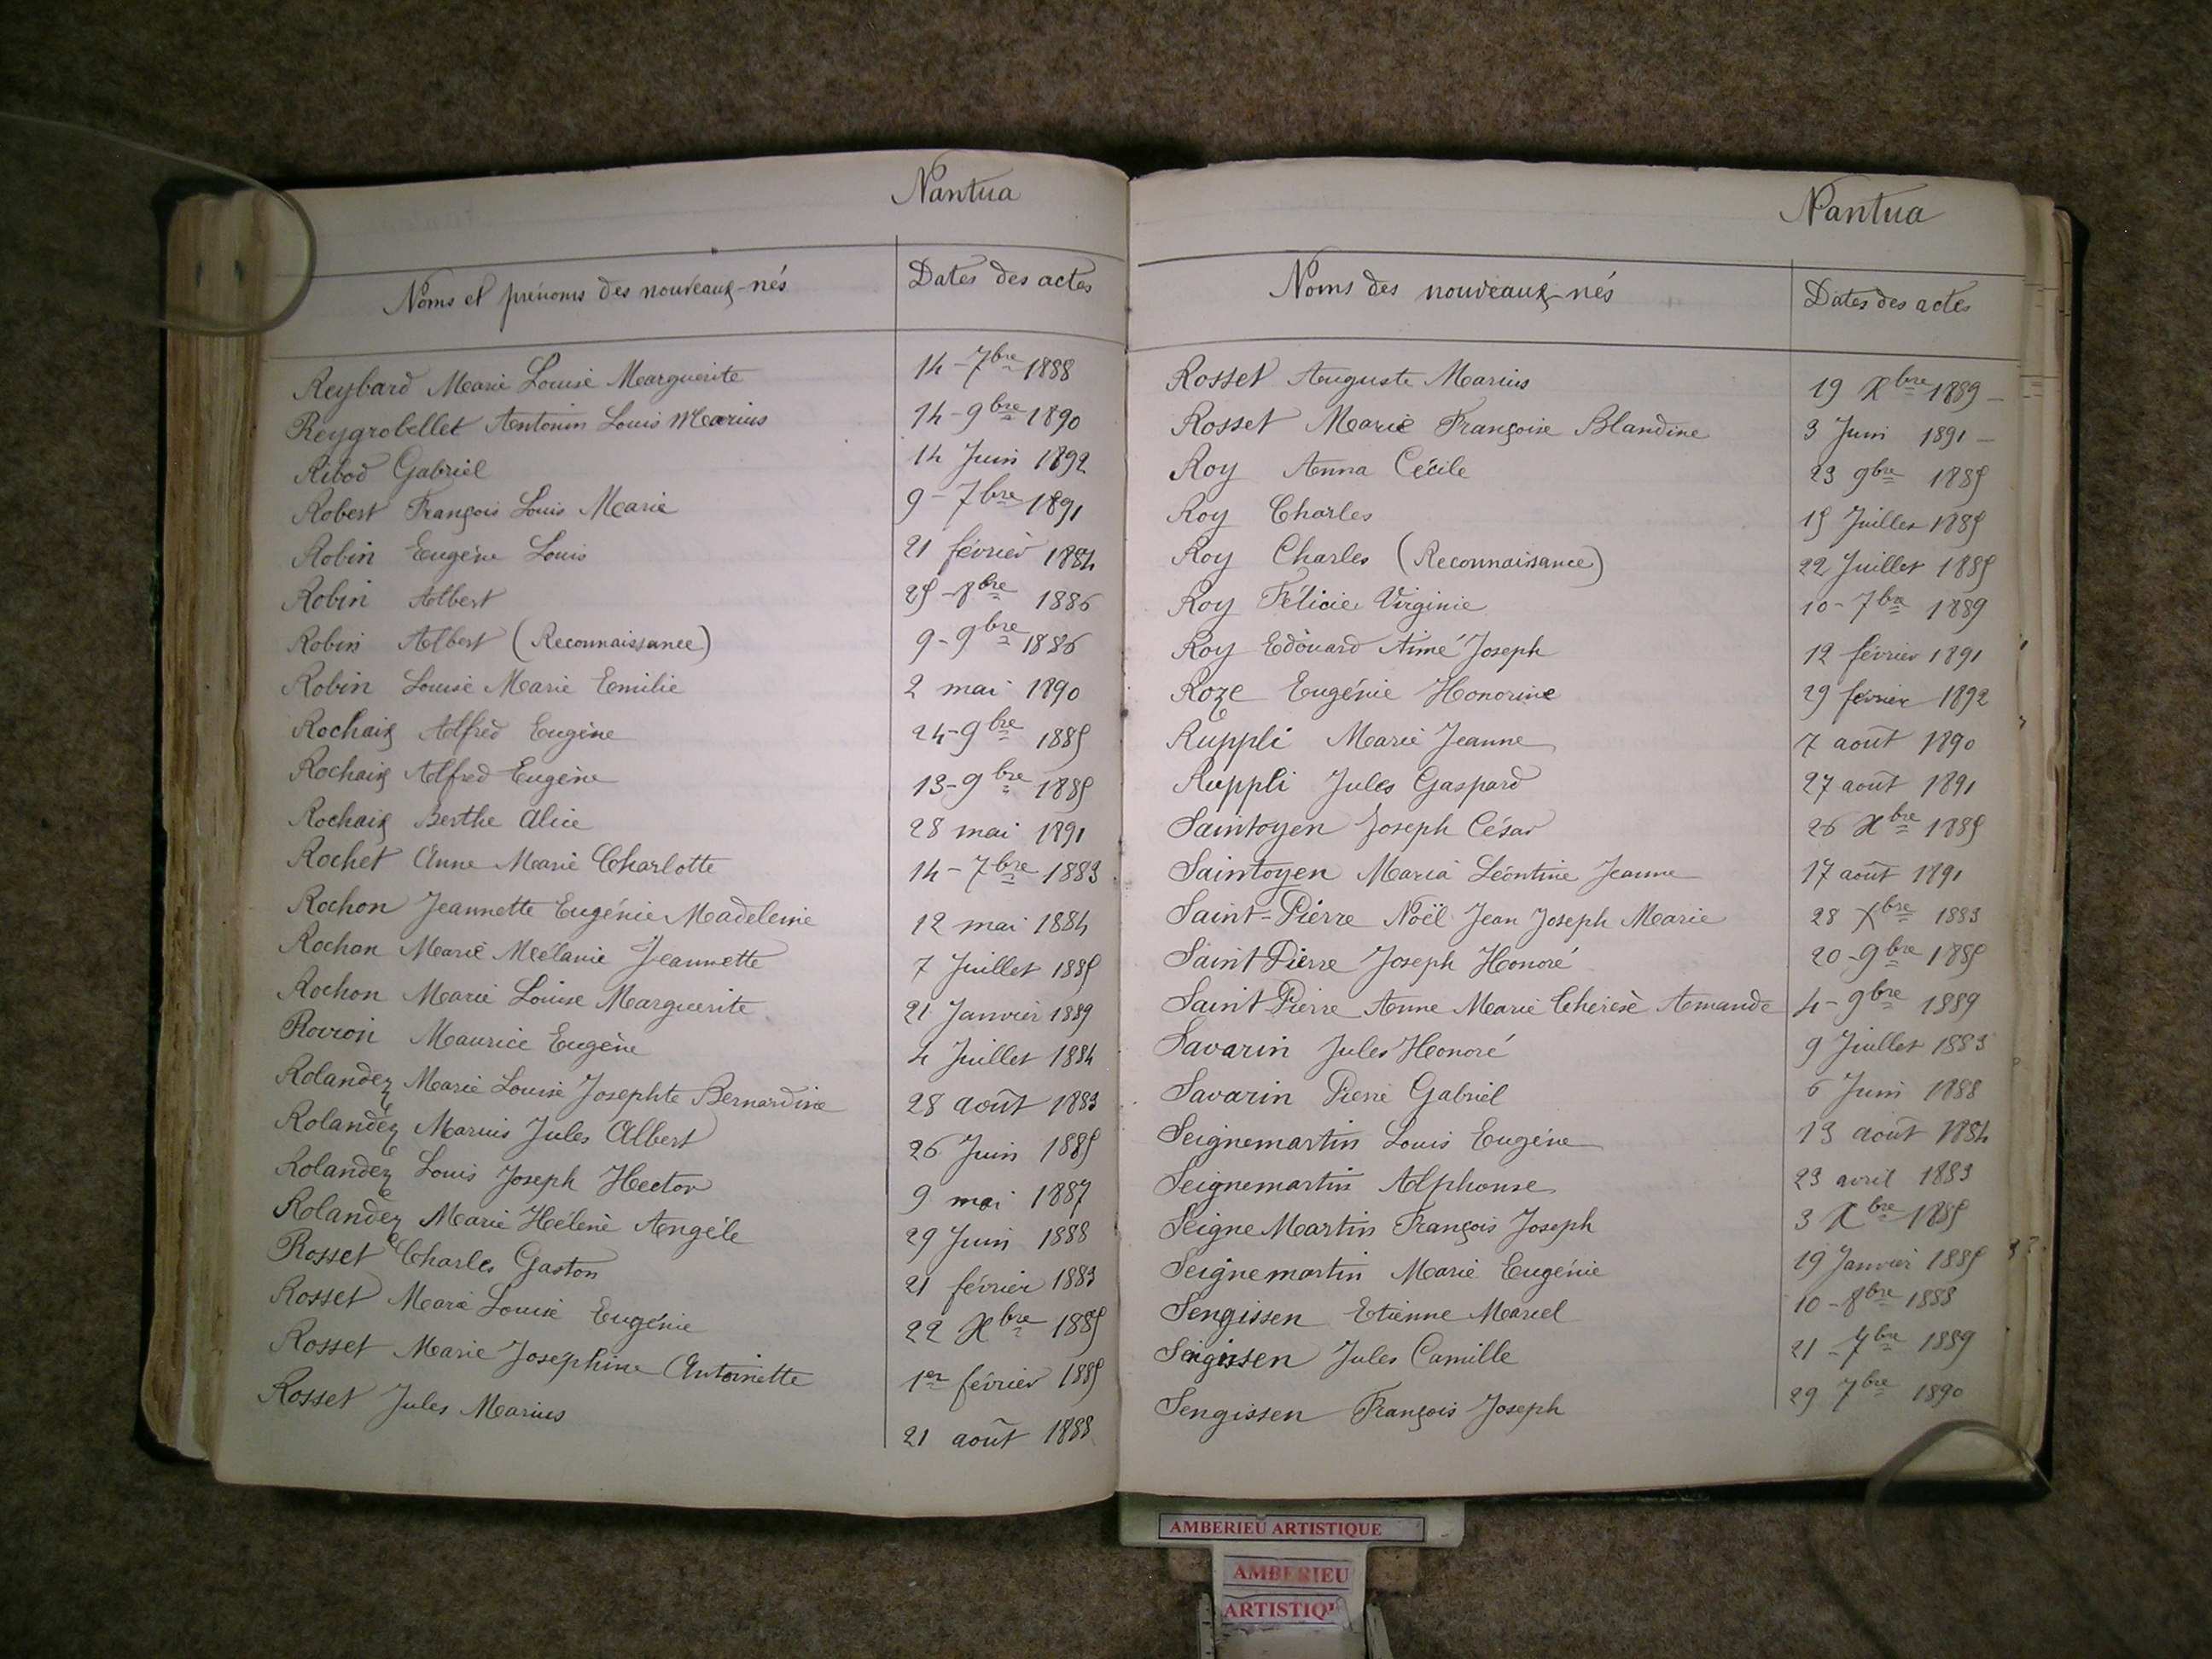 Nantua
Noms et prénoms des nouveaux-nés Dates des actes
Reybard Marie Louise Marguerite 14-7bre 1888
Reygrobellet Antonin Louis Marius 14-9bre 1890
Ribod Gabriel 14 Juin 1892
Robert François Louis Marie 9-7bre 1891
Robin Eugène Louis 21 février 1884
Robin Albert 25-8bre 1886
Robin Albert (Reconnaissance) 9-9bre 1886
Robin Louise Marie Emilie 2 mai 1890
Rochaix Alfred Eugène 24-9bre 1885
Rochaix Alfred Eugène 13-9bre 1885
Rochaix Berthe Alice 28 mai 1891
Rochet Anne Marie Charlotte 14-7bre 1883
Rochon Jeannette Eugénie Madeleine 12 mai 1884
Rochon Marie Mélanie Jeannette 7 Juillet 1885
Rochon Marie Louise Marguerite 21 Janvier 1889
Maurice Eugène 4 Juillet 1884
Rolandez Marie Louise Josephte Bernardine 28 août 1883
Rolandez Marius Jules Albert 26 Juin 1885
Rolandez Louis Joseph Hector 9 mai 1887
Rolandez Marie Hélène Angèle 29 Juin 1888
Rosset Charles Gaston 21 février 1883
Rosset Marie Louise Eugénie 22 Xbre 1885
Rosset Marie Joséphine Antoinette 1er février 1885
Rosset Jules Marius 21 août 1888
Nantua
Noms des nouveaux-nés Dates des actes
Rosset Auguste Marius 19 Xbre 1889
Rosset Marie Françoise Blandine 3 Juin 1891
Roy Anna Cécile 23 9bre 1885
Roy Charles 15 Juillet 1885
Roy Charles (Reconnaissance) 22 Juillet 1885
Roy Félicie Virginie 10-7bre 1889
Roy Edouard Aimé Joseph 12 février 1891
Roze Eugénie Honorine 29 février 1892
Ruppli Marie Jeanne 7 août 1890
Ruppli Jules Gaspard 27 août 1891
Saintoyen Joseph César 26 Xbre 1885
Saintoyen Maria Léontine Jeanne 17 août 1891
Saint-Pierre Noël Jean Joseph Marie 28 Xbre 1883
Saint Pierre Joseph Honoré 20-9bre 1885
Saint Pierre Anne Marie Thérèse Amande 4-9bre 1889
Savarin Jules Honoré 9 Juillet 1883
Savarin Pierre Gabriel 6 Juin 1888
Seignemartin Louis Eugène 13 août 1884
Seignemartin Alphonse 23 avril 1883
Seigne Martin François Joseph 3 Xbre 1885
Seignemartin Marie Eugénie 19 Janvier 1885
Sengissen Etienne Marcel 10-8bre 1888
Sengissen Jules Camille 21-7bre 1889
Sengissen François Joseph 29 7bre 1890
AMBERIEU ARTISTIQUE
AMBERIEU
ARTISTIQU